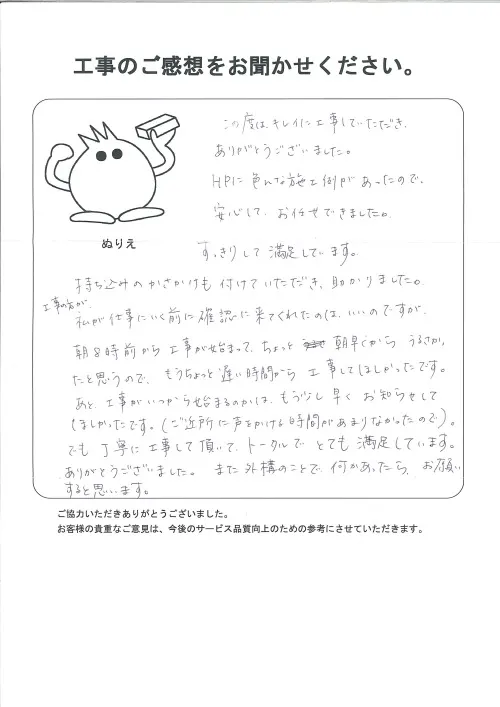 工事のご感想をお聞かせください。
この度は、キレイに工事していただき、
ありがとうございました。
HPに色んな施工例があったので、
安心して、お任せできました。
ぬりえ
すっきりして満足しています。
持ち込みのかさかけも付けていただき、助かりました。
工事の方が、
私が仕事にいく前に確認に来てくれたのは、いいのですが、
朝8時前から工事が始まって、ちょっと朝早くから うるさかっ
たと思うので、もうちょっと遅い時間から工事してほしかったです。
あと、工事がいつから始まるのかは、もう少し早くお知らせして
ほしかったです。(ご近所に声をかける時間があまりなかったので)。
でも丁寧に工事して頂いて、トータルでとても満足しています。
ありがとうございました。また外構のことで、何かあったら、お願い
すると思います。
ご協力いただきありがとうございました。
お客様の貴重なご意見は、今後のサービス品質向上のための参考にさせていただきます。